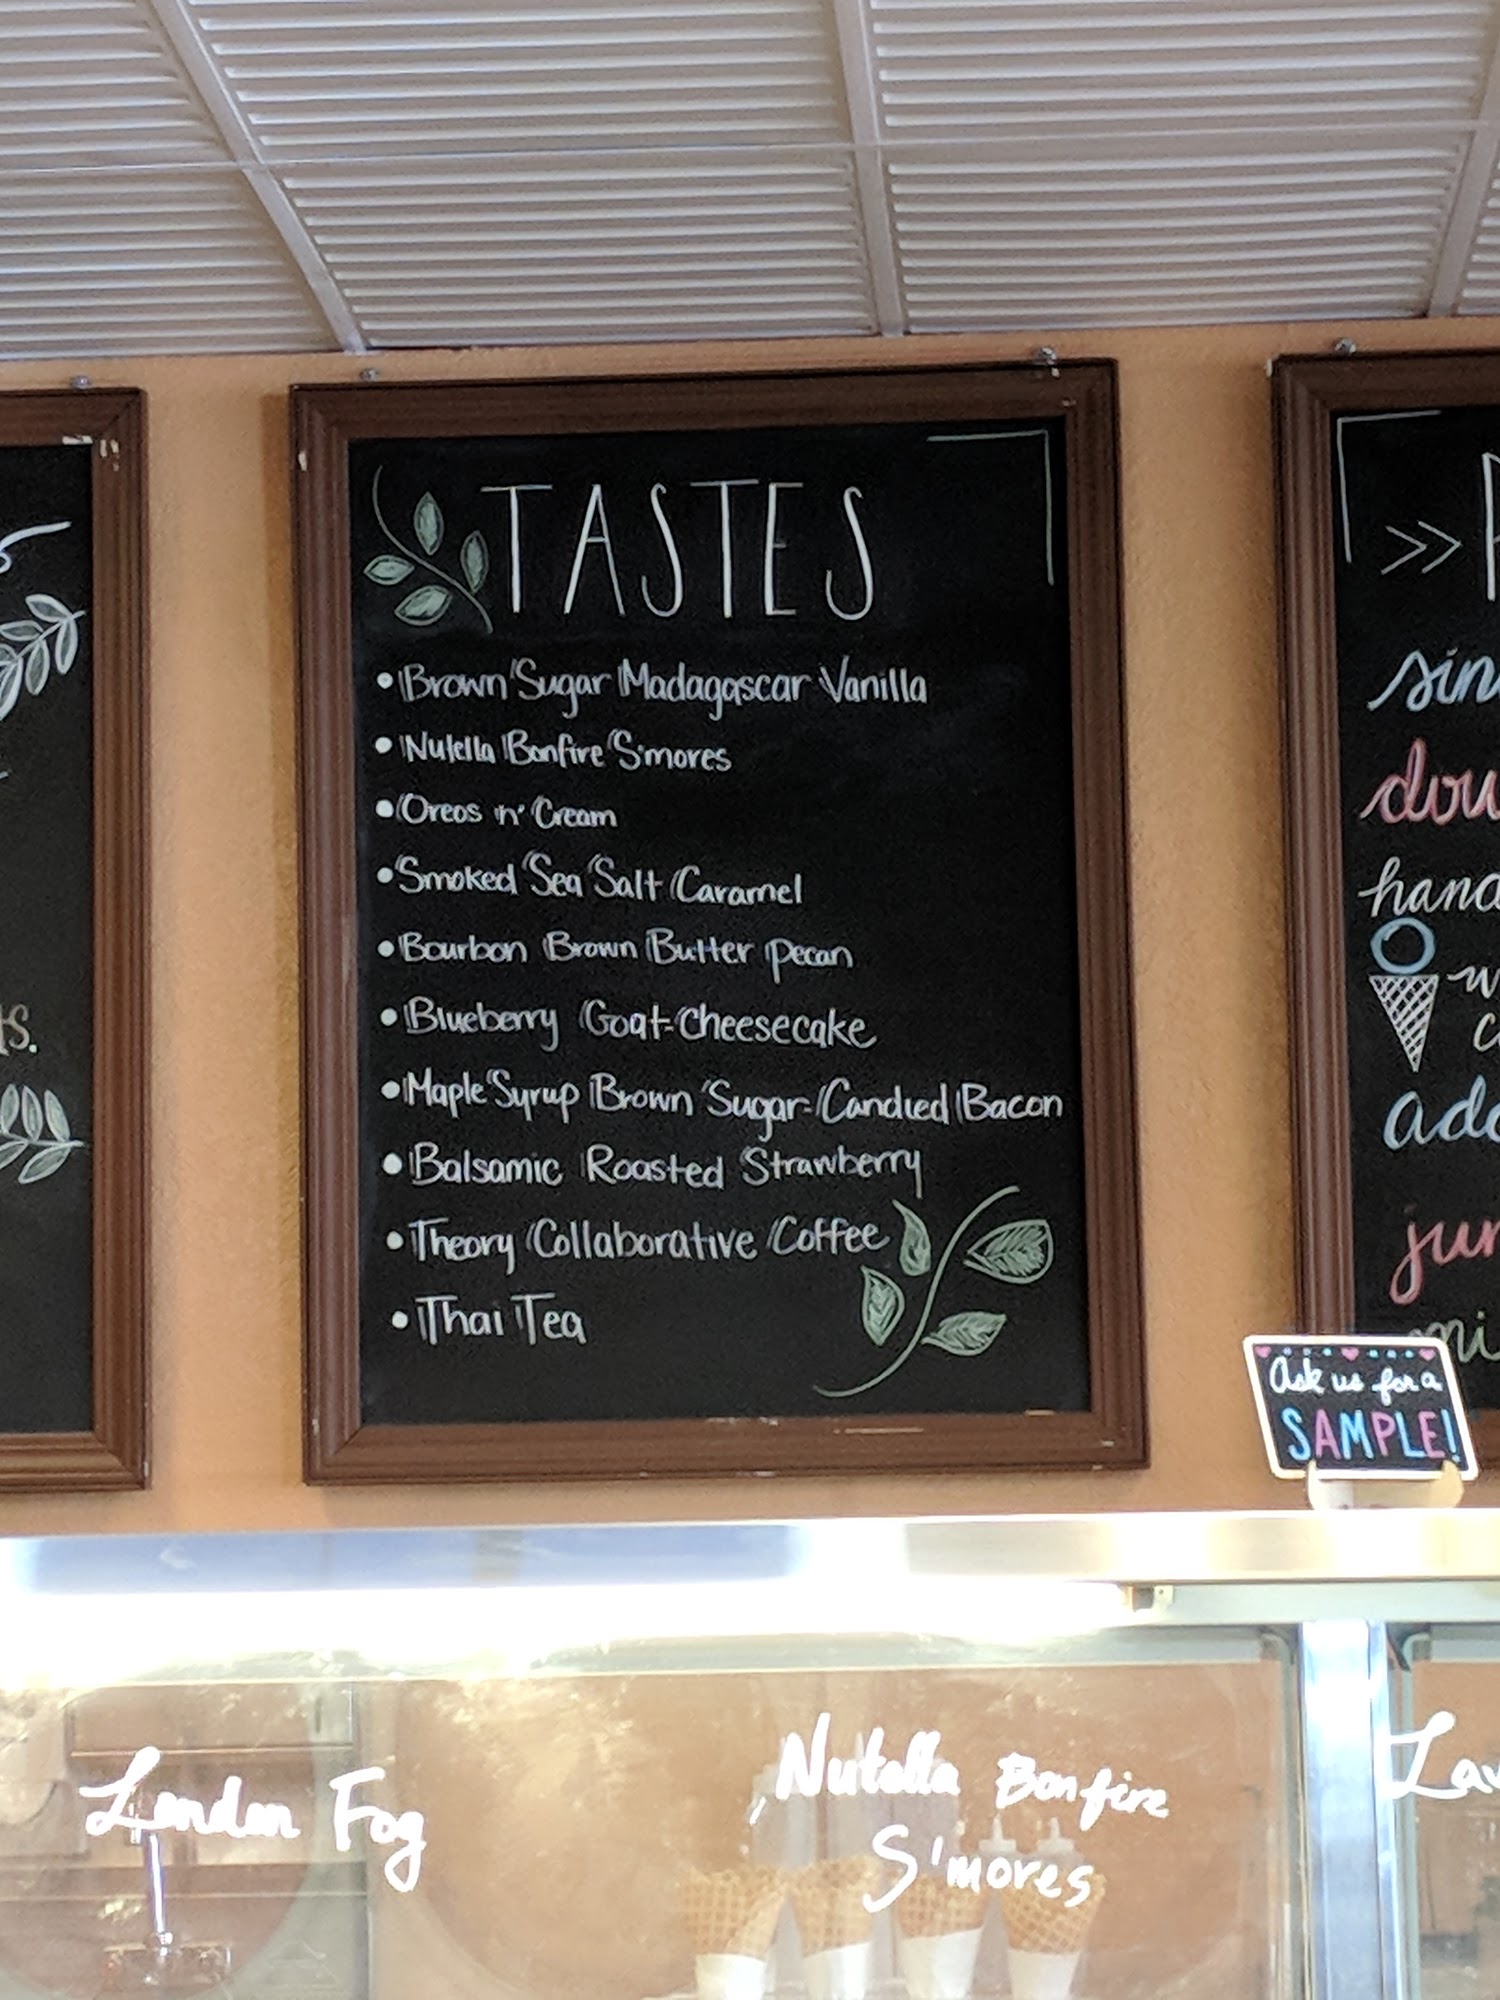 TASTES
• Brown Sugar Madagascar Vanilla
• Nutella Bonfire S'mores
• Oreos n' Cream
• Smoked Sea Salt Caramel
• Bourbon Brown Butter Pecan
• Blueberry Goat-Cheesecake
• Maple Syrup Brown Sugar-Candied Bacon
• Balsamic Roasted Strawberry
• Theory Collaborative Coffee
• Thai Tea
>>
Ask us for a
SAMPLE!
London Fog
Nutella Bonfire
S'mores